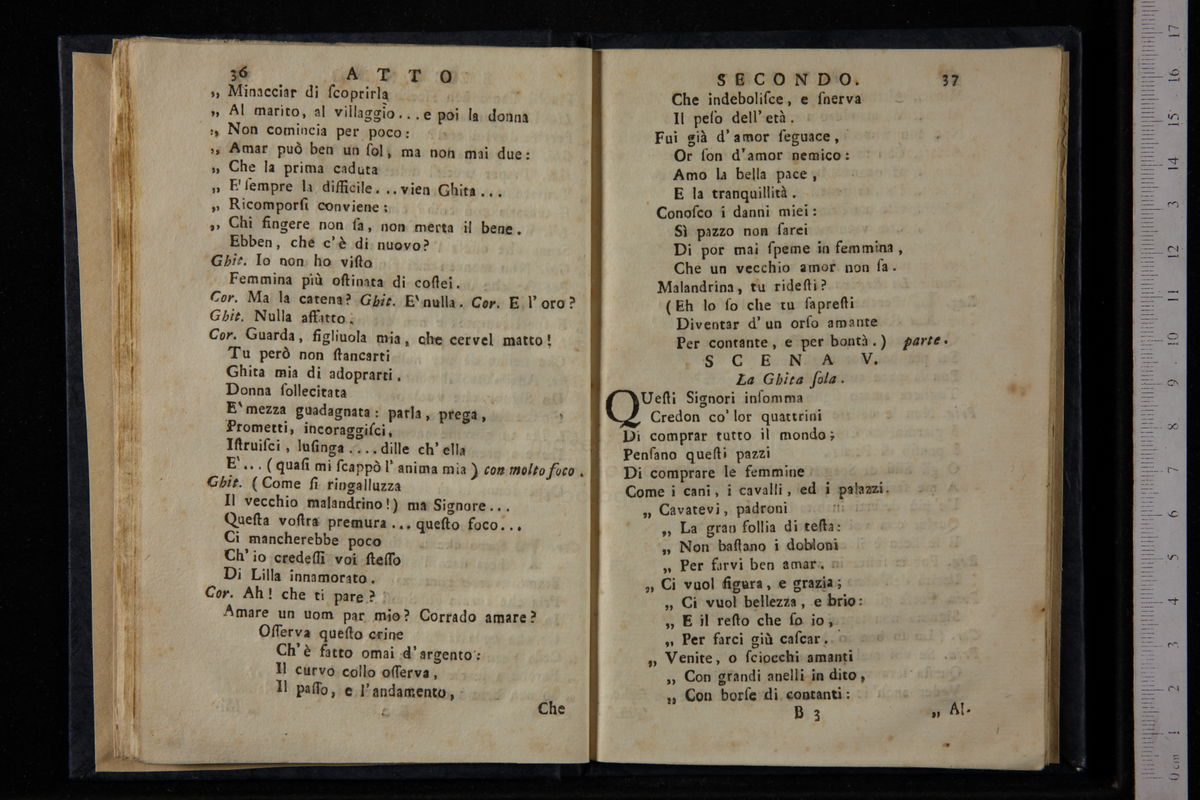 36 ATTO
„ Minacciar di ſcoprirla
„ Al marito, al villaggio...e poi la donna
„ Non comincia per poco:
„ Amar può ben un ſol, ma non mai due:
„ Che la prima caduta
„ E' ſempre la difficile...vien Ghita...
„ Ricomporſi conviene:
„ Chi fingere non ſa, non merta il bene.
Ebben, che c'è di nuovo?
Ghit. Io non ho viſto
Femmina più oſtinata di coſtei.
Cor. Ma la catena? Ghit. E' nulla. Cor. E l'oro?
Ghit. Nulla affatto.
Cor. Guarda, figliuola mia, che cervel matto!
Tu però non ſtancarti
Ghita mia di adoprarti.
Donna ſollecitata
E' mezza guadagnata: parla, prega,
Prometti, incoraggiſci,
Iſtruiſci, luſinga....dille ch'ella
E'... (quaſi mi ſcappò l'anima mia) con molto foco.
Ghit. (Come ſi ringalluzza
Il vecchio malandrino!) ma Signore...
Queſta voſtra premura... queſto foco...
Ci mancherebbe poco
Ch'io credeſſi voi ſteſſo
Di Lilla innamorato.
Cor. Ah! che ti pare?
Amare un uom par mio? Corrado amare?
Oſſerva queſto crine
Ch'è fatto omai d'argento:
Il curvo collo oſſerva,
Il paſſo, e l'andamento,
Che
SECONDO. 37
Che indeboliſce, e ſnerva
Il peſo dell'età.
Fui già d'amor ſeguace,
Or ſon d'amor nemico:
Amo la bella pace,
E la tranquillità.
Conoſco i danni miei:
Sì pazzo non ſarei
Di por mai ſpeme in femmina,
Che un vecchio amor non ſa.
Malandrina, tu rideſti?
(Eh lo ſo che tu ſapreſti
Diventar d'un orſo amante
Per contante, e per bontà.) parte.
SCENA V.
La Ghita ſola.
QUeſti Signori inſomma
Credon co' lor quattrini
Di comprar tutto il mondo;
Penſano queſti pazzi
Di comprare le femmine
Come i cani, i cavalli, ed i palazzi.
„ Cavatevi, padroni
„ La gran follia di teſta:
„ Non baſtano i dobloni
„ Per farvi ben amar.
„ Ci vuol figura, e grazia;
„ Ci vuol bellezza, e brio:
„ E il reſto che ſo io,
„ Per farci giù caſcar.
„ Venite, o ſciocchi amanti
„ Con grandi anelli in dito,
„ Con borſe di contanti:
B 3 „ Al-
0 cm 1 2 3 4 5 6 7 8 9 10 11 12 13 14 15 16 17